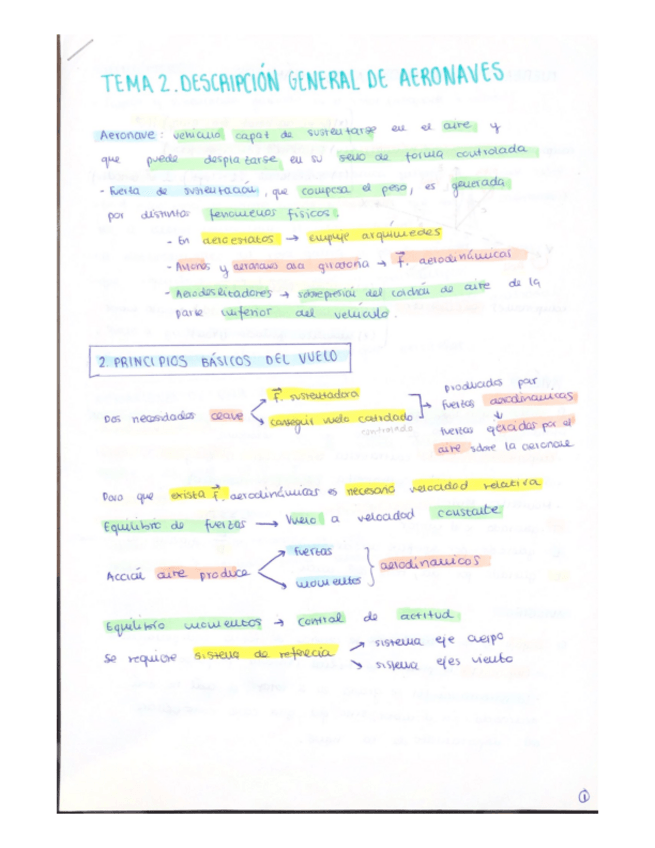 TEMA 2. DESCRIPCIÓN GENERAL DE AERONAVES
Aeronave: vehículo capaz de sustentarse en el aire y
que puede desplazarse en su seno de forma controlada
- Fuerza de sustentación, que compensa el peso, es generada
por distintos fenómenos físicos.
- En aeroestatos → empuje arquímedes
- Aviones y aeronaves ala giratoria → F. aerodinámicas
- Aerodeslizadores → sobrepresión del colchón de aire de la
parte inferior del vehículo.
2. PRINCIPIOS BÁSICOS DEL VUELO
Dos necesidades clave
F. sustentadora
conseguir vuelo controlado
controlado
producidas por
fuerzas aerodinámicas
↓
fuerzas ejercidas por el
aire sobre la aeronave
Para que exista F. aerodinámicas es necesario velocidad relativa
Equilibrio de fuerzas → Vuelo a velocidad constante
Acción aire produce
fuerzas
momentos
aerodinámicos
Equilibrio momentos → control de actitud
Se requiere sistema de referencia
→ sistema eje cuerpo
→ sistema ejes viento
1